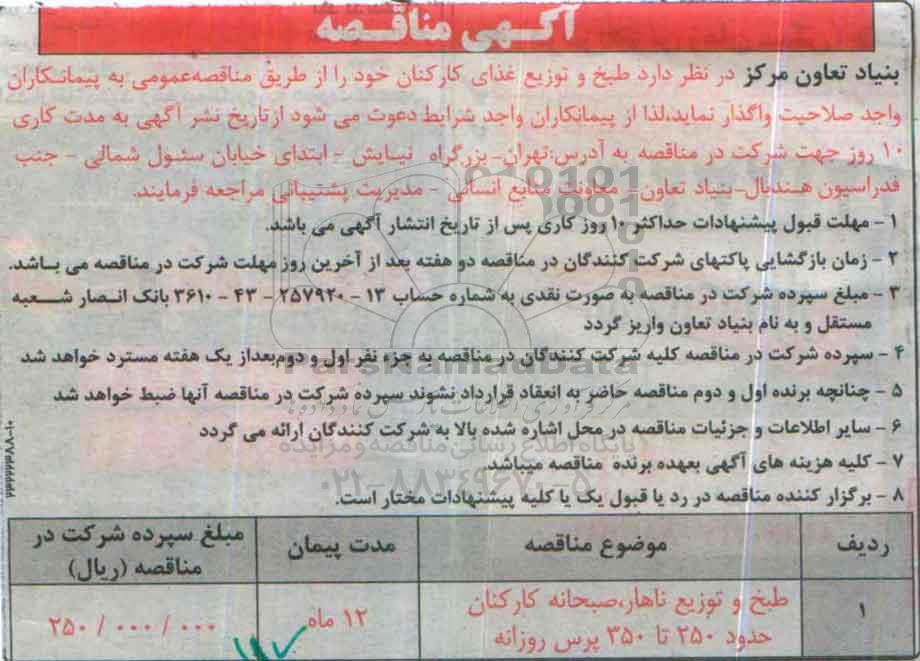 آگهی مناقصه
بنیاد تعاون مرکز در نظر دارد طبخ و توزیع غذای کارکنان خود را از طریق مناقصه‌عمومی به پیمانکاران
واجد صلاحیت واگذار نماید،لذا از پیمانکاران واجد شرایط دعوت می شود ازتاریخ نشر آگهی به مدت کاری
۱۰ روز جهت شرکت در مناقصه به آدرس:تهران- بزرگراه نیایش - ابتدای خیابان سئول شمالی - جنب
فدراسیون هندبال-بنیاد تعاون- معاونت منابع انسانی - مدیریت پشتیبانی مراجعه فرمایند.
۱ - مهلت قبول پیشنهادات حداکثر ۱۰ روز کاری پس از تاریخ انتشار آگهی می باشد.
۲ - زمان بازگشایی پاکتهای شرکت کنندگان در مناقصه دو هفته بعد از آخرین روز مهلت شرکت در مناقصه می باشد.
۳ - مبلغ سپرده شرکت در مناقصه به صورت نقدی به شماره حساب ۱۳ - ۲۵۷۹۲۰ - ۴۳ - ۳۶۱۰ بانک انصار شعبه
مستقل و به نام بنیاد تعاون واریز گردد
۴ - سپرده شرکت در مناقصه کلیه شرکت کنندگان در مناقصه به جزء نفر اول و دوم،بعداز یک هفته مسترد خواهد شد
۵ - چنانچه برنده اول و دوم مناقصه حاضر به انعقاد قرارداد نشوند سپرده شرکت در مناقصه آنها ضبط خواهد شد
۶ - سایر اطلاعات و جزئیات مناقصه در محل اشاره شده بالا به شرکت کنندگان ارائه می گردد
۷ - کلیه هزینه های آگهی بعهده برنده مناقصه میباشد.
۸ - برگزار کننده مناقصه در رد یا قبول یک یا کلیه پیشنهادات مختار است.
ParsNamadData
پایگاه اطلاع رسانی مناقصه و مزایده
۰۲۱-۸۸۳۴۹۶۷۰-۵
ردیف موضوع مناقصه مدت پیمان مبلغ سپرده شرکت در
مناقصه (ریال)
۱ طبخ و توزیع ناهار،صبحانه کارکنان
حدود ۲۵۰ تا ۳۵۰ پرس روزانه ۱۲ ماه ۲۵۰ / ۰۰۰ / ۰۰۰